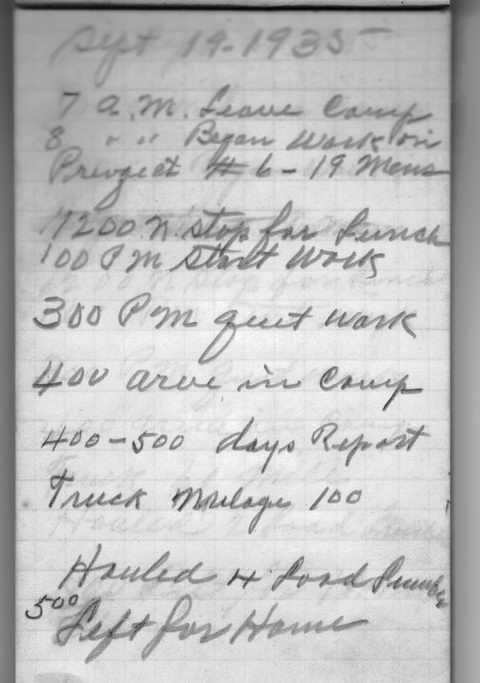 Sept 19-1935
7 a.m. Leave Camp
8 " " Began Work on
Prevgect # 6 - 19 Mens
1200 N. stop for Lunch
100 PM Start Work
300 PM quit work
400 arve in Camp
400-500 days Report
Truck Milage 100
Hauled 4 Load Lumber
500
Left for Home